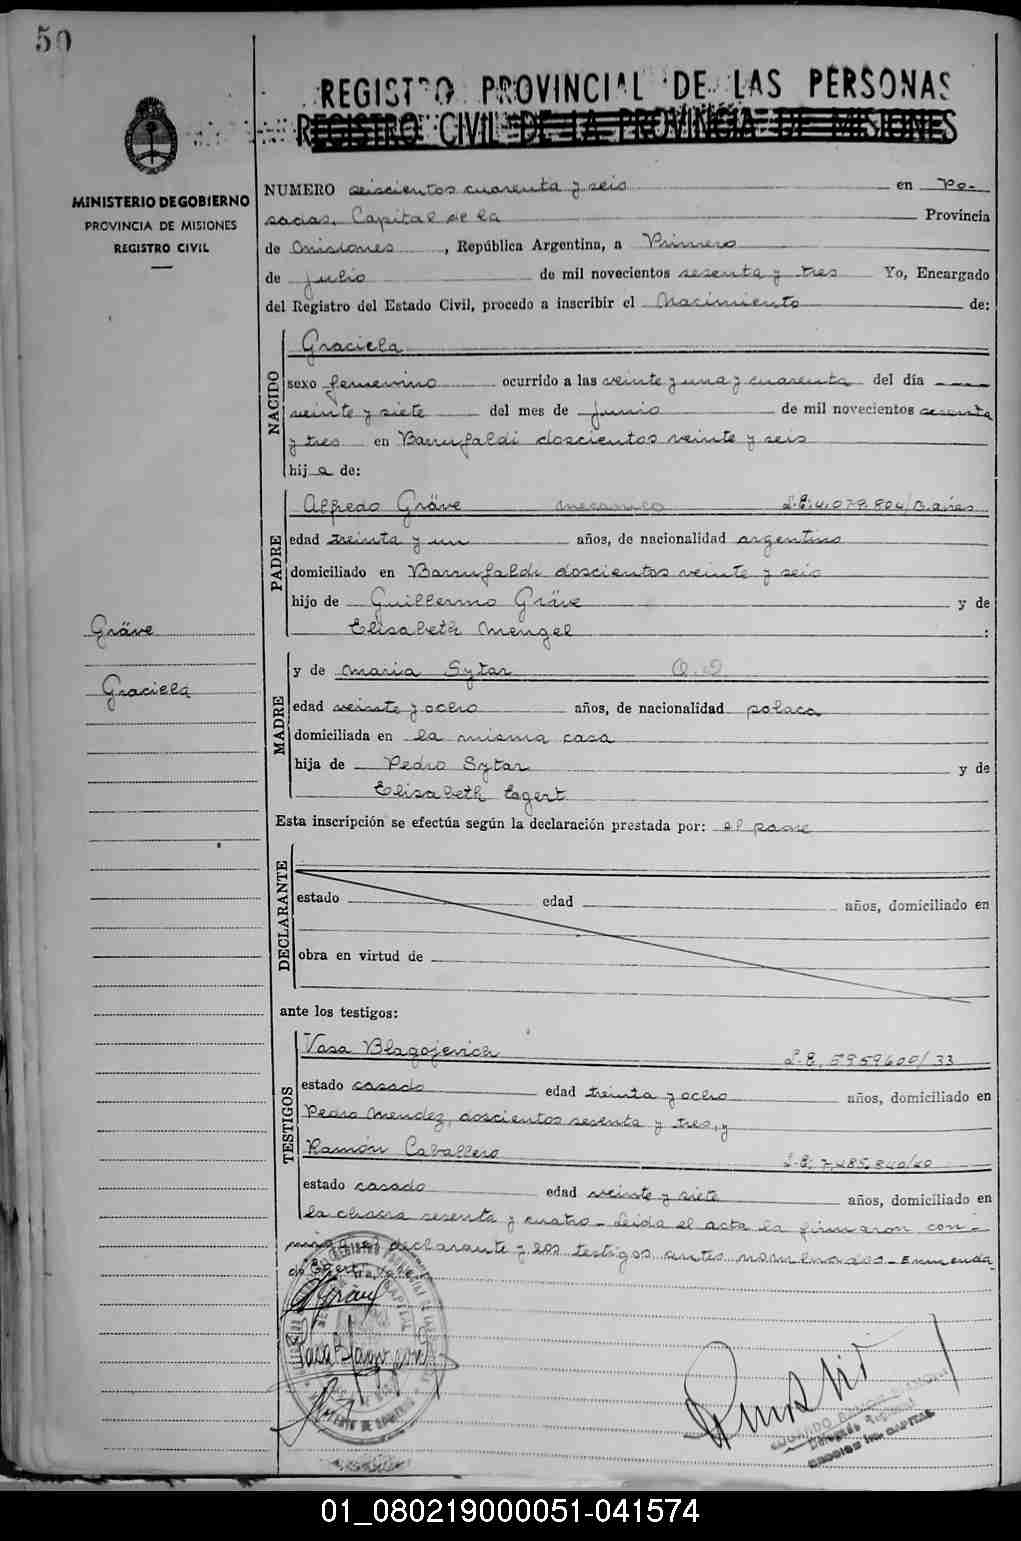 50
REGISTRO PROVINCIAL DE LAS PERSONAS
REGISTRO CIVIL DE LA PROVINCIA DE MISIONES
MINISTERIO DE GOBIERNO
PROVINCIA DE MISIONES
REGISTRO CIVIL
NUMERO seiscientos cuarenta y seis en Po-
sadas, Capital de la Provincia
de Misiones, República Argentina, a Primero
de Julio de mil novecientos sesenta y tres Yo, Encargado
del Registro del Estado Civil, procedo a inscribir el Nacimiento de:
NACIDO
Graciela
sexo femenino ocurrido a las veinte y una y cuarenta del día
veinte y siete del mes de junio de mil novecientos sesenta
y tres en Barrufaldi doscientos veinte y seis
hija de:
PADRE
Alfredo Gräve mecanico L.E. 4.078.804/B.aires
edad treinta y un años, de nacionalidad argentino
domiciliado en Barrufaldi doscientos veinte y seis
hijo de Guillermo Gräve y de
Elisabeth Mengel :
Gräve
Graciela
MADRE
y de Maria Sytar Q.D
edad veinte y ocho años, de nacionalidad polaca
domiciliada en la misma casa
hija de Pedro Sytar y de
Elisabeth Egert
Esta inscripción se efectúa según la declaración prestada por: el padre
DECLARANTE
estado edad años, domiciliado en
obra en virtud de
ante los testigos:
TESTIGOS
Vasa Blagojevich L.E. 5959600/33
estado casado edad treinta y ocho años, domiciliado en
Pedro Mendez, doscientos sesenta y tres, y
Ramón Caballero L.E. 7.485.840/40
estado casado edad veinte y siete años, domiciliado en
la chacra sesenta y cuatro - Leida el acta la firmaron con-
migo el declarante y los testigos antes nombrados - Enmenda-
do Egert, Vale
Delegado Regional
01_080219000051-041574